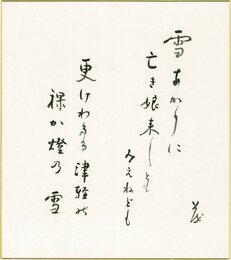 雪あかりに
亡き娘来しとも
みえねども
茂
更けわたる津軽の
裸か燈の雪